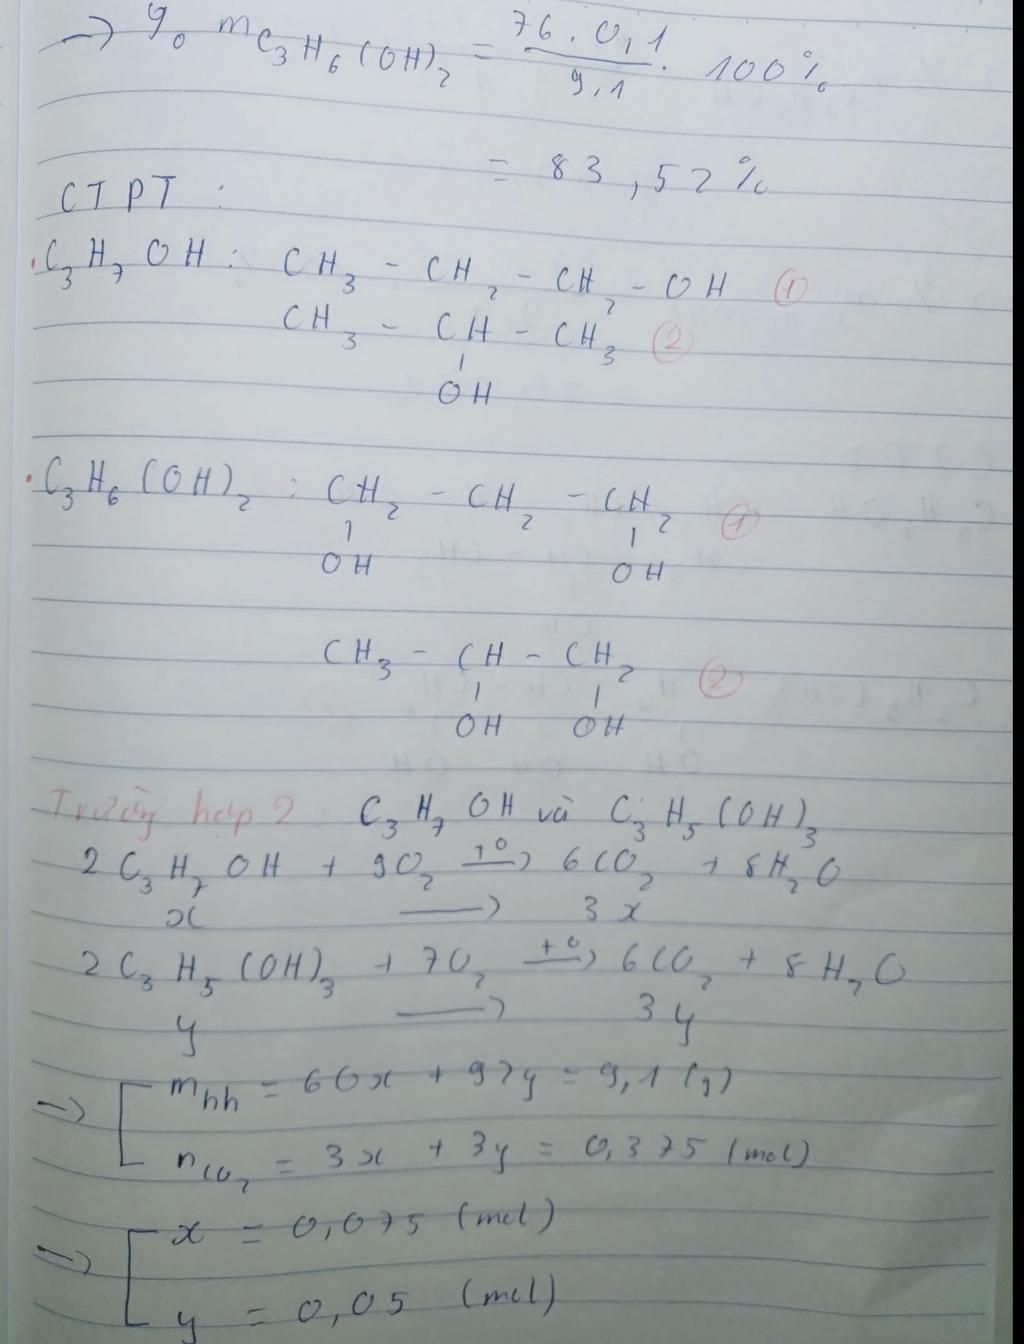 → % m C₃H₆(OH)₂ = 76.0,1 / 9,1 . 100%
= 83,52%
CTPT :
. C₃H₇OH : CH₃ - CH₂ - CH₂ - OH ①
CH₃ - CH - CH₃ ②
OH
. C₃H₆(OH)₂ : CH₂ - CH₂ - CH₂ ①
OH OH
CH₃ - CH - CH₂ ②
OH OH
Trường hợp 2 : C₃H₇OH và C₃H₅(OH)₃
2C₃H₇OH + 9O₂ →(t⁰) 6CO₂ + 8H₂O
x → 3x
2C₃H₅(OH)₃ + 7O₂ →(t⁰) 6CO₂ + 8H₂O
y → 3y
⇒ [ m hh = 60x + 92y = 9,1 (g)
n CO₂ = 3x + 3y = 0,375 (mol)
⇒ [ x = 0,075 (mol)
y = 0,05 (mol)